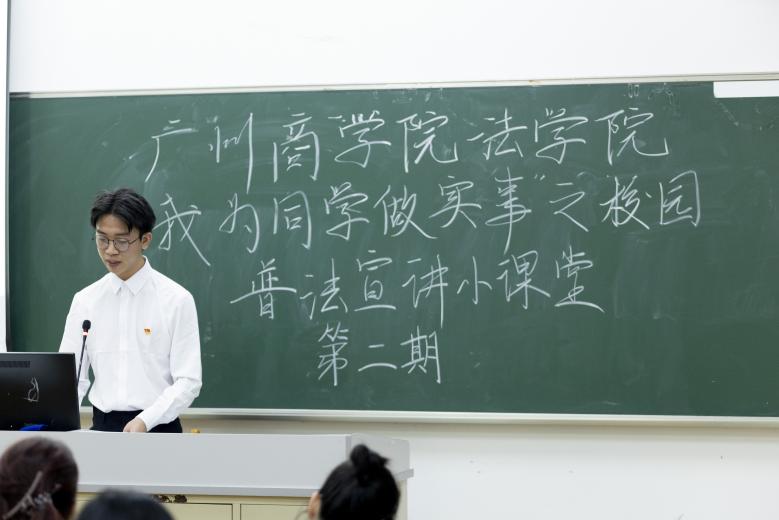 广州商学院法学院
我为同学做实事"之校园
普法宣讲小课堂
第二期